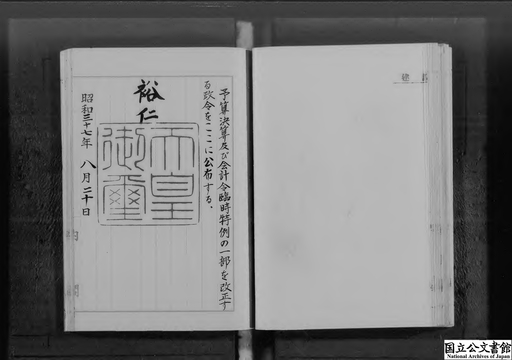 予算決算及び会計令臨時特例の一部を改正す
る政令をここに公布する。
裕仁
天皇
御璽
昭和三十七年 八月二十日
国立公文書館
National Archives of Japan